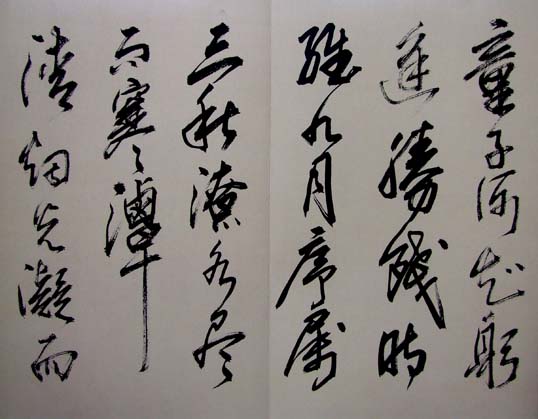 童子何知躬
逢勝餞時
維九月序属
三秋潦水尽
而寒潭
清烟光凝而